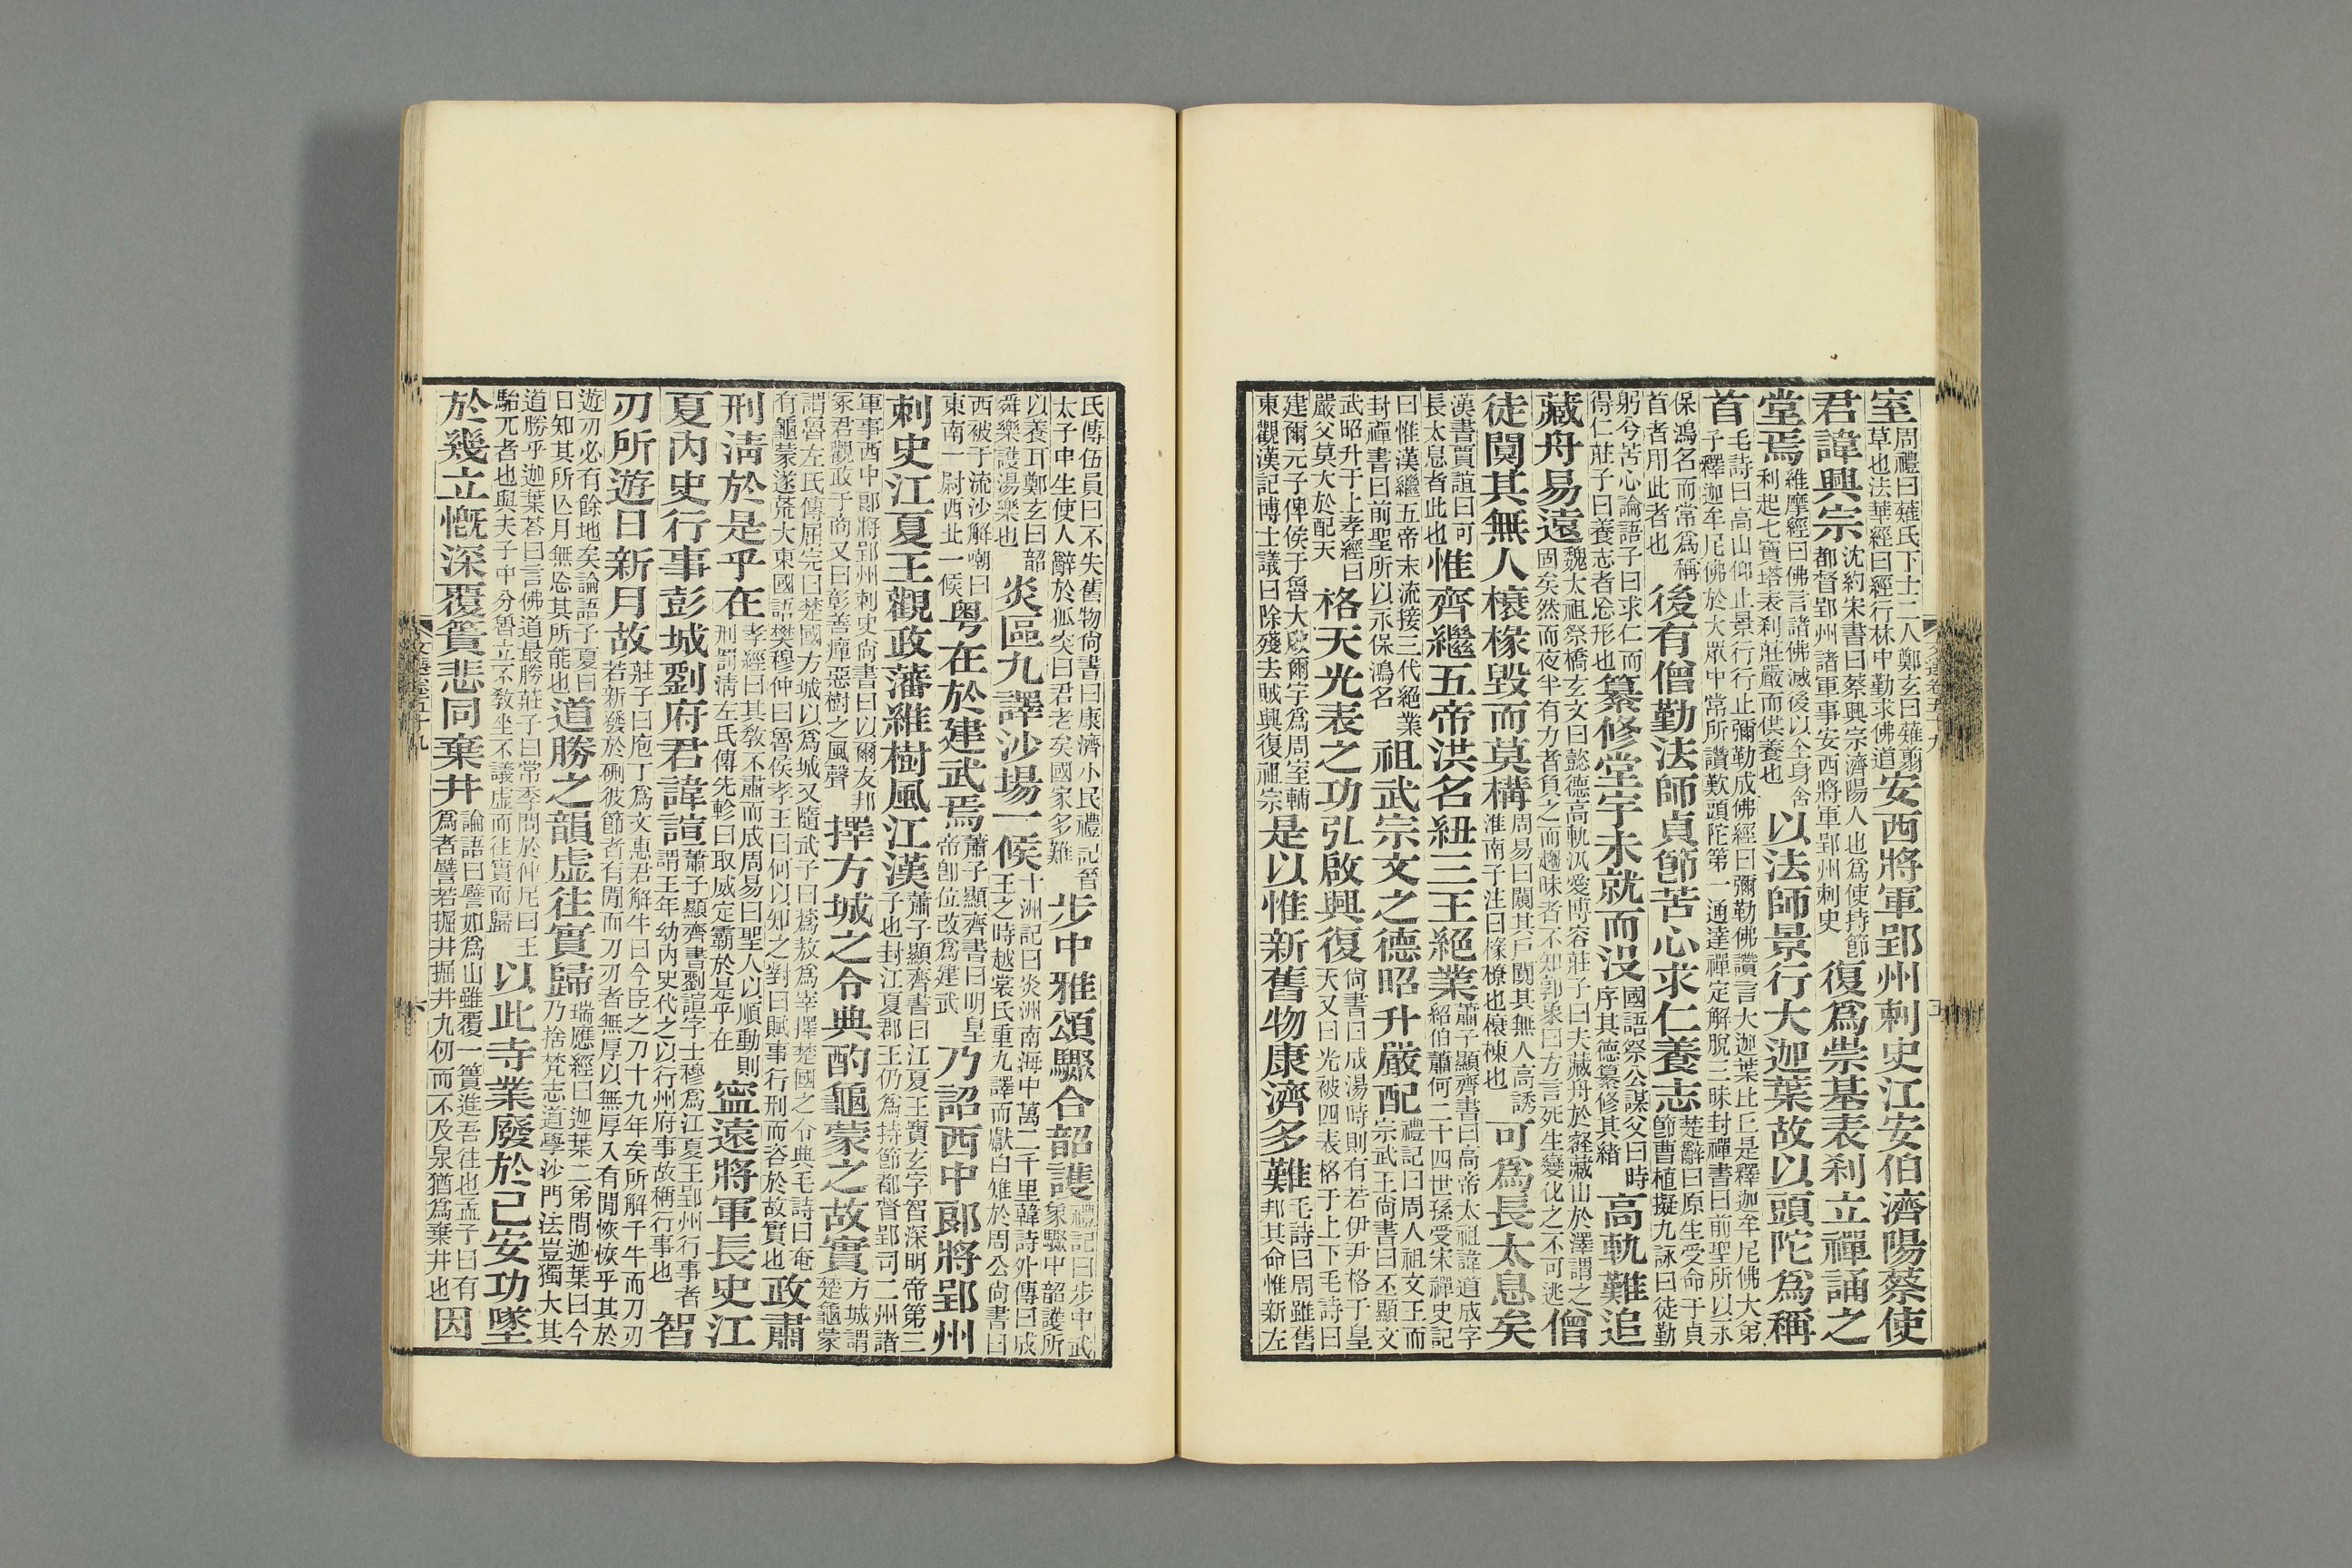 室周禮曰薙氏下士二人鄭玄曰薙翦草也法華經曰經行林中勤求佛道安西將軍郢州刺史江安伯濟陽蔡使
君諱興宗沈約宋書曰蔡興宗濟陽人也爲使持節都督郢州諸軍事安西將軍郢州刺史復爲崇基表刹立禪誦之
堂焉維摩經曰佛言諸佛滅後以全身舍利起七寶塔表刹莊嚴而供養也以法師景行大迦葉故以頭陀爲稱
首毛詩曰高山仰止景行行止彌勒成佛經曰彌勒佛讚言大迦葉比丘是釋迦牟尼佛大弟子釋迦牟尼佛於大眾中常所讚歎頭陀第一通達禪定解脫三昧封禪書曰前聖所以永
保鴻名而常爲稱首者用此者也後有僧勤法師貞節苦心求仁養志楚辭曰原生受命于貞節曹植擬九詠曰徒勤
躬兮苦心論語子曰求仁而得仁莊子曰養志者忘形也纂修堂宇未就而没國語祭公謀父曰時序其德纂修其緒高軌難追
藏舟易遠魏太祖祭橋玄文曰懿德高軌汎愛博容莊子曰夫藏舟於壑藏山於澤謂之固矣然而夜半有力者負之而趨昧者不知郭象曰方言死生變化之不可逃僧
徒闃其無人榱椽毀而莫構周易曰闚其戶闃其無人高誘淮南子注曰榱橑也榱棟也可爲長太息矣
漢書賈誼曰可長太息者此也惟齊繼五帝洪名紐三王絕業蕭子顯齊書曰高帝太祖諱道成字紹伯蕭何二十四世孫受宋禪史記
曰惟漢繼五帝末流接三代絕業封禪書曰前聖所以永保鴻名祖武宗文之德昭升嚴配禮記曰周人祖文王而宗武王尙書曰丕顯文
武昭升于上孝經曰嚴父莫大於配天格天光表之功弘啟興復尙書曰成湯時則有若伊尹格于皇天又曰光被四表格于上下毛詩曰
建爾元子俾侯于魯大啟爾宇爲周室輔東觀漢記博士議曰除殘去賊興復祖宗是以惟新舊物康濟多難毛詩曰周雖舊邦其命惟新左
氏傳伍員曰不失舊物尙書曰康濟小民禮記晉太子申生使人辭於狐突曰君老矣國家多難步中雅頌驟合韶護禮記曰步中武象驟中韶護所
以養耳鄭玄曰韶舜樂護湯樂也炎區九譯沙場一候十洲記曰炎洲南海中萬二千里韓詩外傳曰成王之時越裳氏重九譯而獻白雉於周公尙書曰
西被于流沙解嘲曰東南一尉西北一候粤在於建武焉蕭子顯齊書曰明皇帝卽位改爲建武乃詔西中郞將郢州
刺史江夏王觀政藩維樹風江漢蕭子顯齊書曰江夏王寶玄字智深明帝第三子也封江夏郡王仍爲持節都督郢司二州諸
軍事西中郞將郢州刺史尙書曰以爾友邦冢君觀政于商又曰彰善癉惡樹之風聲擇方城之令典酌龜蒙之故實方城謂楚龜蒙
謂魯左氏傳屈完曰楚國方城以爲城又隨武子曰蔿敖爲宰擇楚國之令典毛詩曰奄有龜蒙遂荒大東國語樊穆仲曰魯侯孝王曰何以知之對曰賦事行刑而咨於故實也政肅
刑淸於是乎在孝經曰其敎不肅而成周易曰聖人以順動則刑罰淸左氏傳先軫曰取威定霸於是乎在寍遠將軍長史江
夏內史行事彭城劉府君諱諠蕭子顯齊書劉諠字士穆爲江夏王郢州行事者謂王年幼內史代之以行州府事故稱行事也智
刃所遊日新月故莊子曰庖丁爲文惠君解牛曰今臣之刀十九年矣所解千牛而刀刃若新發於硎彼節者有閒而刀刃者無厚以無厚入有閒恢恢乎其於
遊刃必有餘地矣論語子夏曰日知其所亾月無忘其所能也道勝之韻虛往實歸瑞應經曰迦葉二弟問迦葉曰今乃捨梵志道學沙門法豈獨大其
道勝乎迦葉荅曰言佛道最勝莊子曰常季問於仲尼曰王駘兀者也與夫子中分魯立不敎坐不議虛而往實而歸以此寺業廢於已安功墜
於幾立慨深覆簣悲同棄井論語曰譬如爲山雖覆一簣進吾往也孟子曰有爲者譬若掘井掘井九仞而不及泉猶爲棄井也因